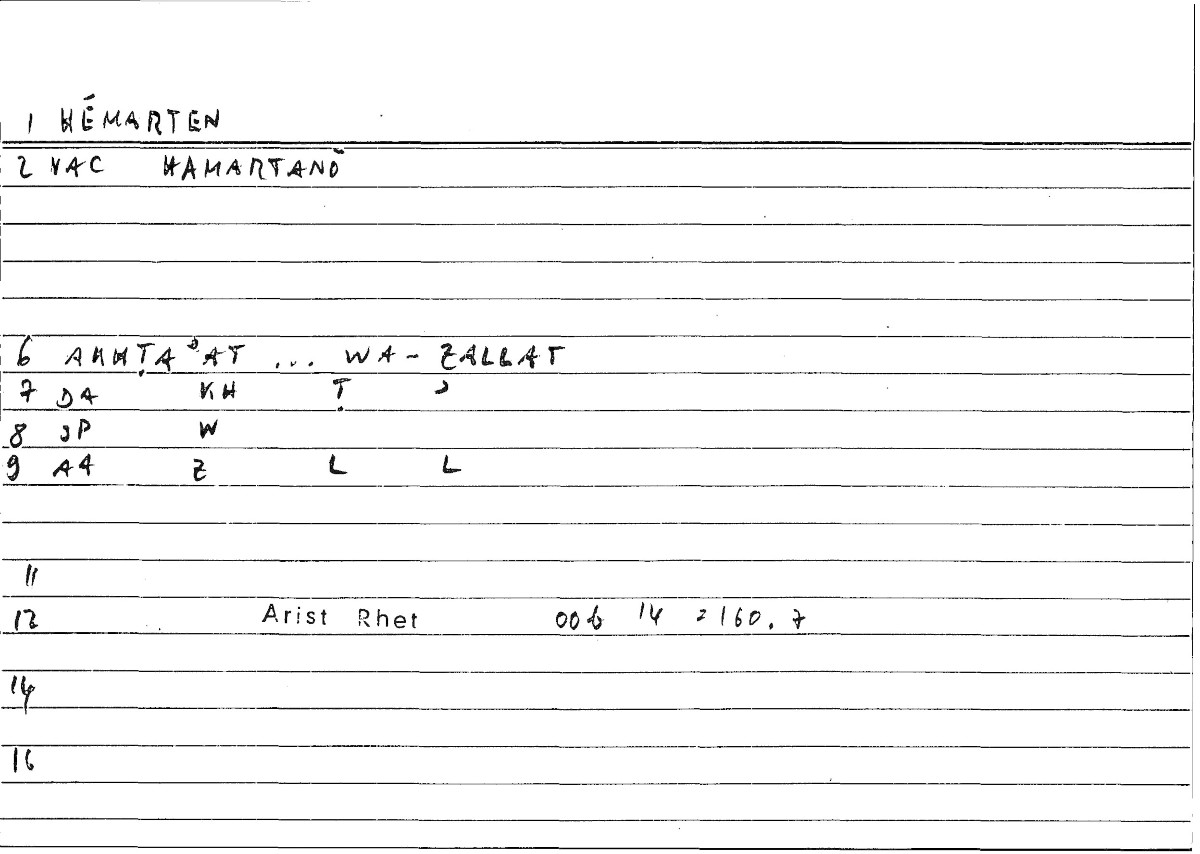 1 HĒMARTEN
2 VAC HAMARTANŌ
6 AKHṬAʾAT ... WA- ZALLAT
7 DA KH Ṭ ʾ
8 ʾP W
9 A4 Z L L
11
12 Arist Rhet 00b 14 = 160.7
14
16